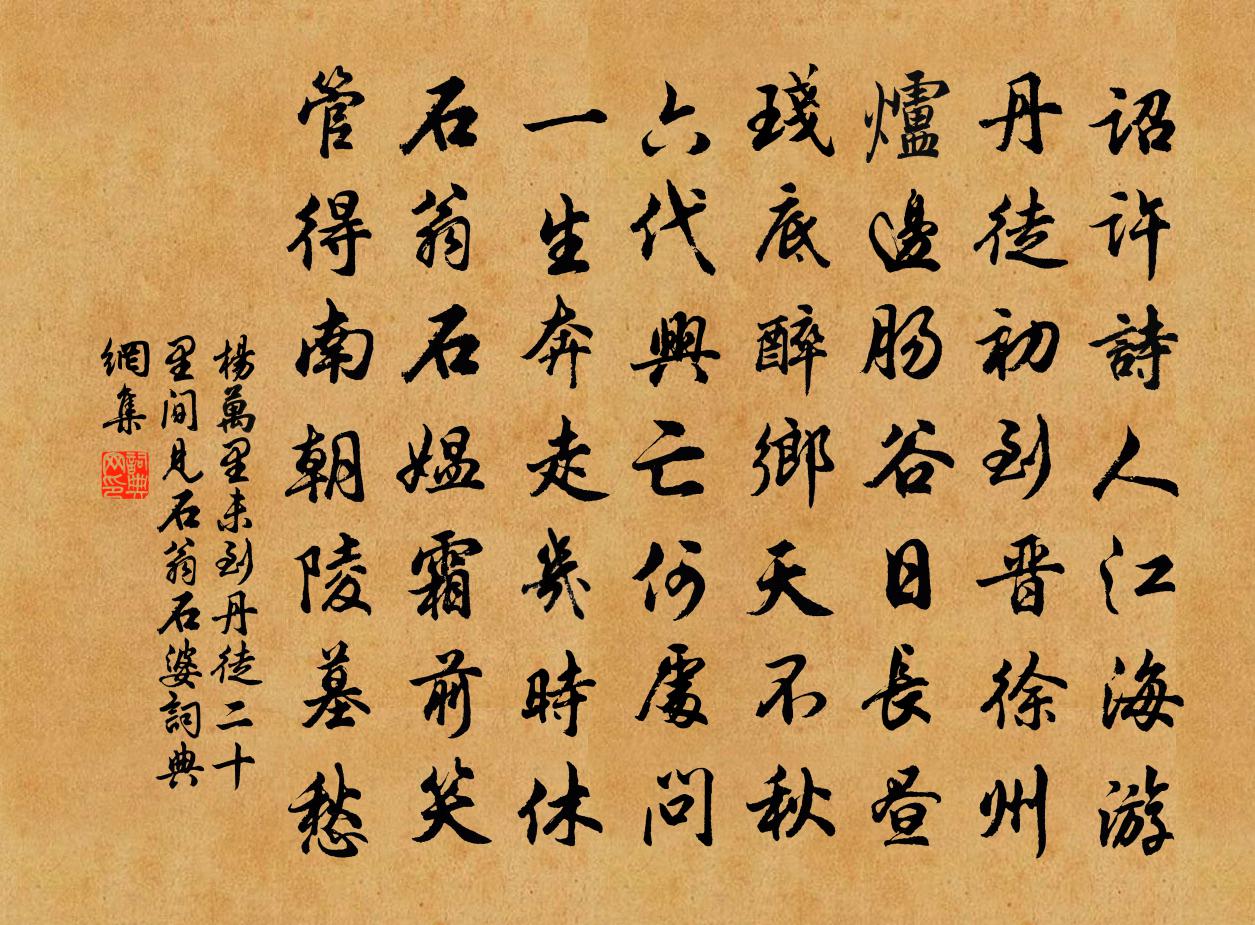 詔許詩人江海游
丹徒初到晋徐州
爐邊腸谷日長晝
琖底醉鄉天不秋
六代興亡何處問
一生奔走幾時休
石翁石媼霜前笑
管得南朝陵墓愁
楊萬里未到丹徒二十
里間見石翁石婆詞典
網集